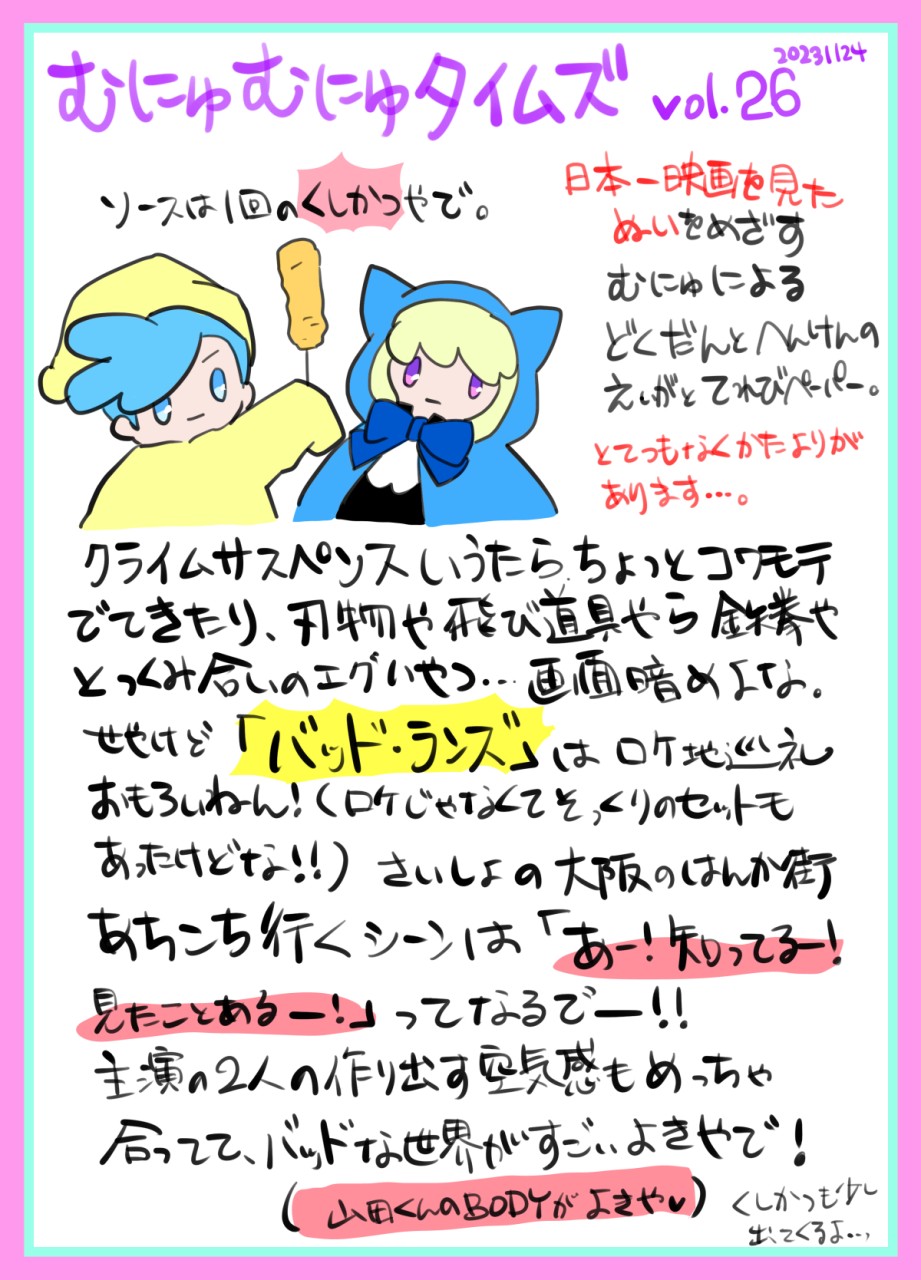 むにゅむにゅタイムズ vol.26
20231124
ソースは1回のくしかつやで。
日本一映画を見た
ぬいをめざす
むにゅによる
どくだんとへんけんの
えいがとてれびペーパー。
とてつもなくかたよりが
あります…。
クライムサスペンスいうたらちょっとコワモテ
でてきたり、刃物や飛び道具やら鉄拳や
とっくみ合いのエグいやつ…画面暗めよな。
せやけど「バッド・ランズ」はロケ地巡礼
おもろいねーん!(ロケじゃなくてそっくりのセットも
あったけどな!!)さいしょの大阪のはんか街
あちこち行くシーンは「あー!知ってるー!
見たことあるー!」ってなるでー!!
主演の2人の作り出す空気感もめっちゃ
合ってて、バッドな世界がすごいよきやで!
(山田くんのBODYがよきや♥)
くしかつも少し
出てくるよ…